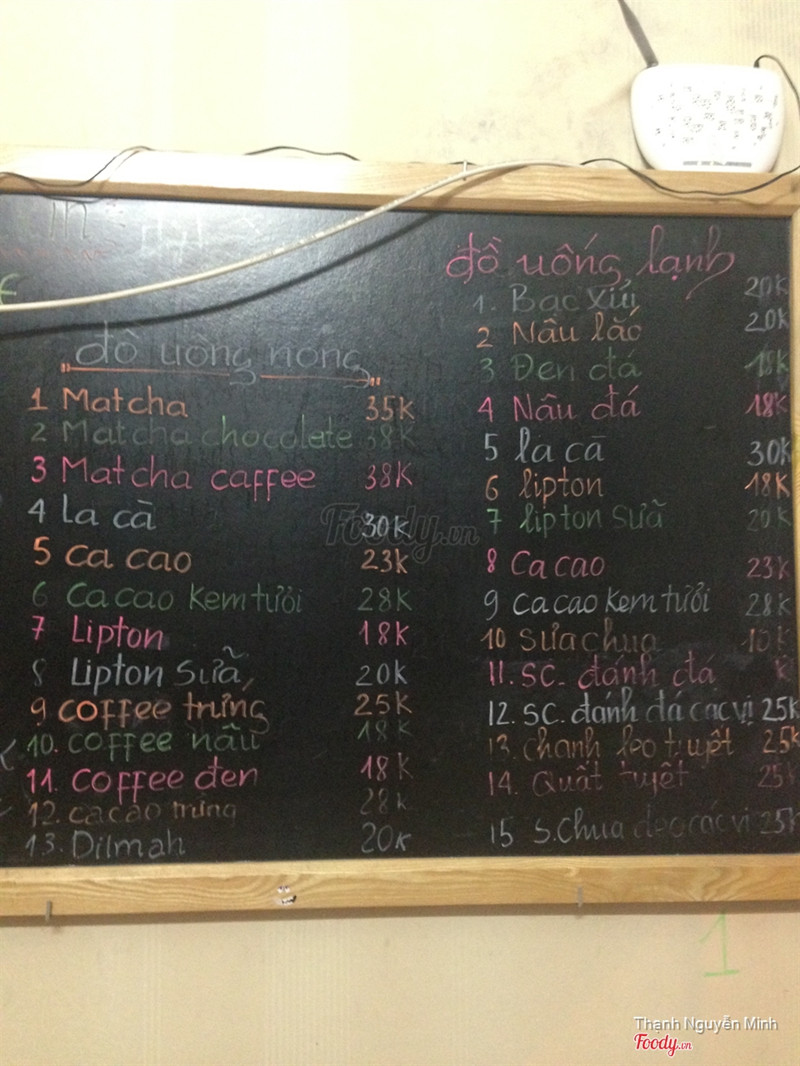 đồ uống nóng
1 Matcha 35K
2 Matcha chocolete 38K
3 Matcha caffee 38K
4 La cà 30K
5 ca cao 23K
6 ca cao kem tưởi 28K
7 Lipton 18K
8 Lipton Sữa 20K
9 coffee trứng 25K
10. coffee nâu 18K
11. coffee đen 18K
12. cacao trứng 28K
13. Dilmah 20K
đồ uống lạnh
1. Bạc xỉu 20K
2 Nâu lắc 20K
3 Đen đá
4 Nâu đá 18K
5 la cà 30K
6 lipton 18K
7 lipton sữa 20K
8 Ca cao 23K
9 ca cao kem tưởi 28K
10 sữa chua
11. SC. đánh đá K
12. SC. đánh đá các vị 25K
13. chanh leo tuyết 25K
14. Quất tuyết 25K
15 S. Chua dẻo các vị 25K
Foody.vn
1
Thạnh Nguyễn Minh
Foody.vn